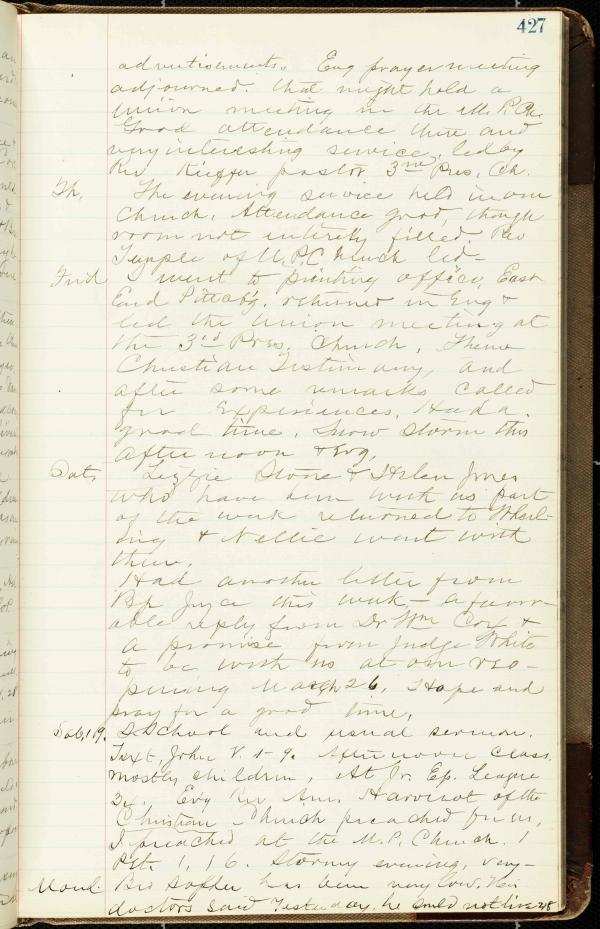 427
advertisements. Eng prayer meeting
adjourned. that might hold a
union meeting in the M. P. Ch.
Good attendance there and
very interesting service, led by
Rev Kieffer pastor 3rd Pres, Ch.
Th, The evening service held in our
Church, Attendance good, though
room not entirely filled. Rev
Temple of U.P. Church led-
Frid went to printing office, East
End Pittsbg. returned in Eng &
led the Union meeting at
the 3rd Pres, Church, Theme
Christian Testimony, and
after some remarks called
for Experiences, Had a
good time, Snow Storm this
afternoon & Evg,
Sat, Lizzie Stone & Helen Jones
who have been with us part
of the week returned to Wheel-
ing & Nellie went with
them.
Had another letter from
Bp Joyce this week - a favor-
able reply from Dr Wm Cox &
a promise from Judge White
to be with us at our reo-
pening March 26, Hope and
pray for a good time,
Sab, 19. S. School and usual sermon.
Text, John V. 1-9. Afternoon class
mostly children, At Jr. Ep. League
34. Evg Rev Am. of the
Christian Church preached for us,
I preached at the M.P. Church. 1
Pet. 1, 16. Stormy evening, very-
Mond. Bro has been very low. His
doctors said Yesterday he could not live 48